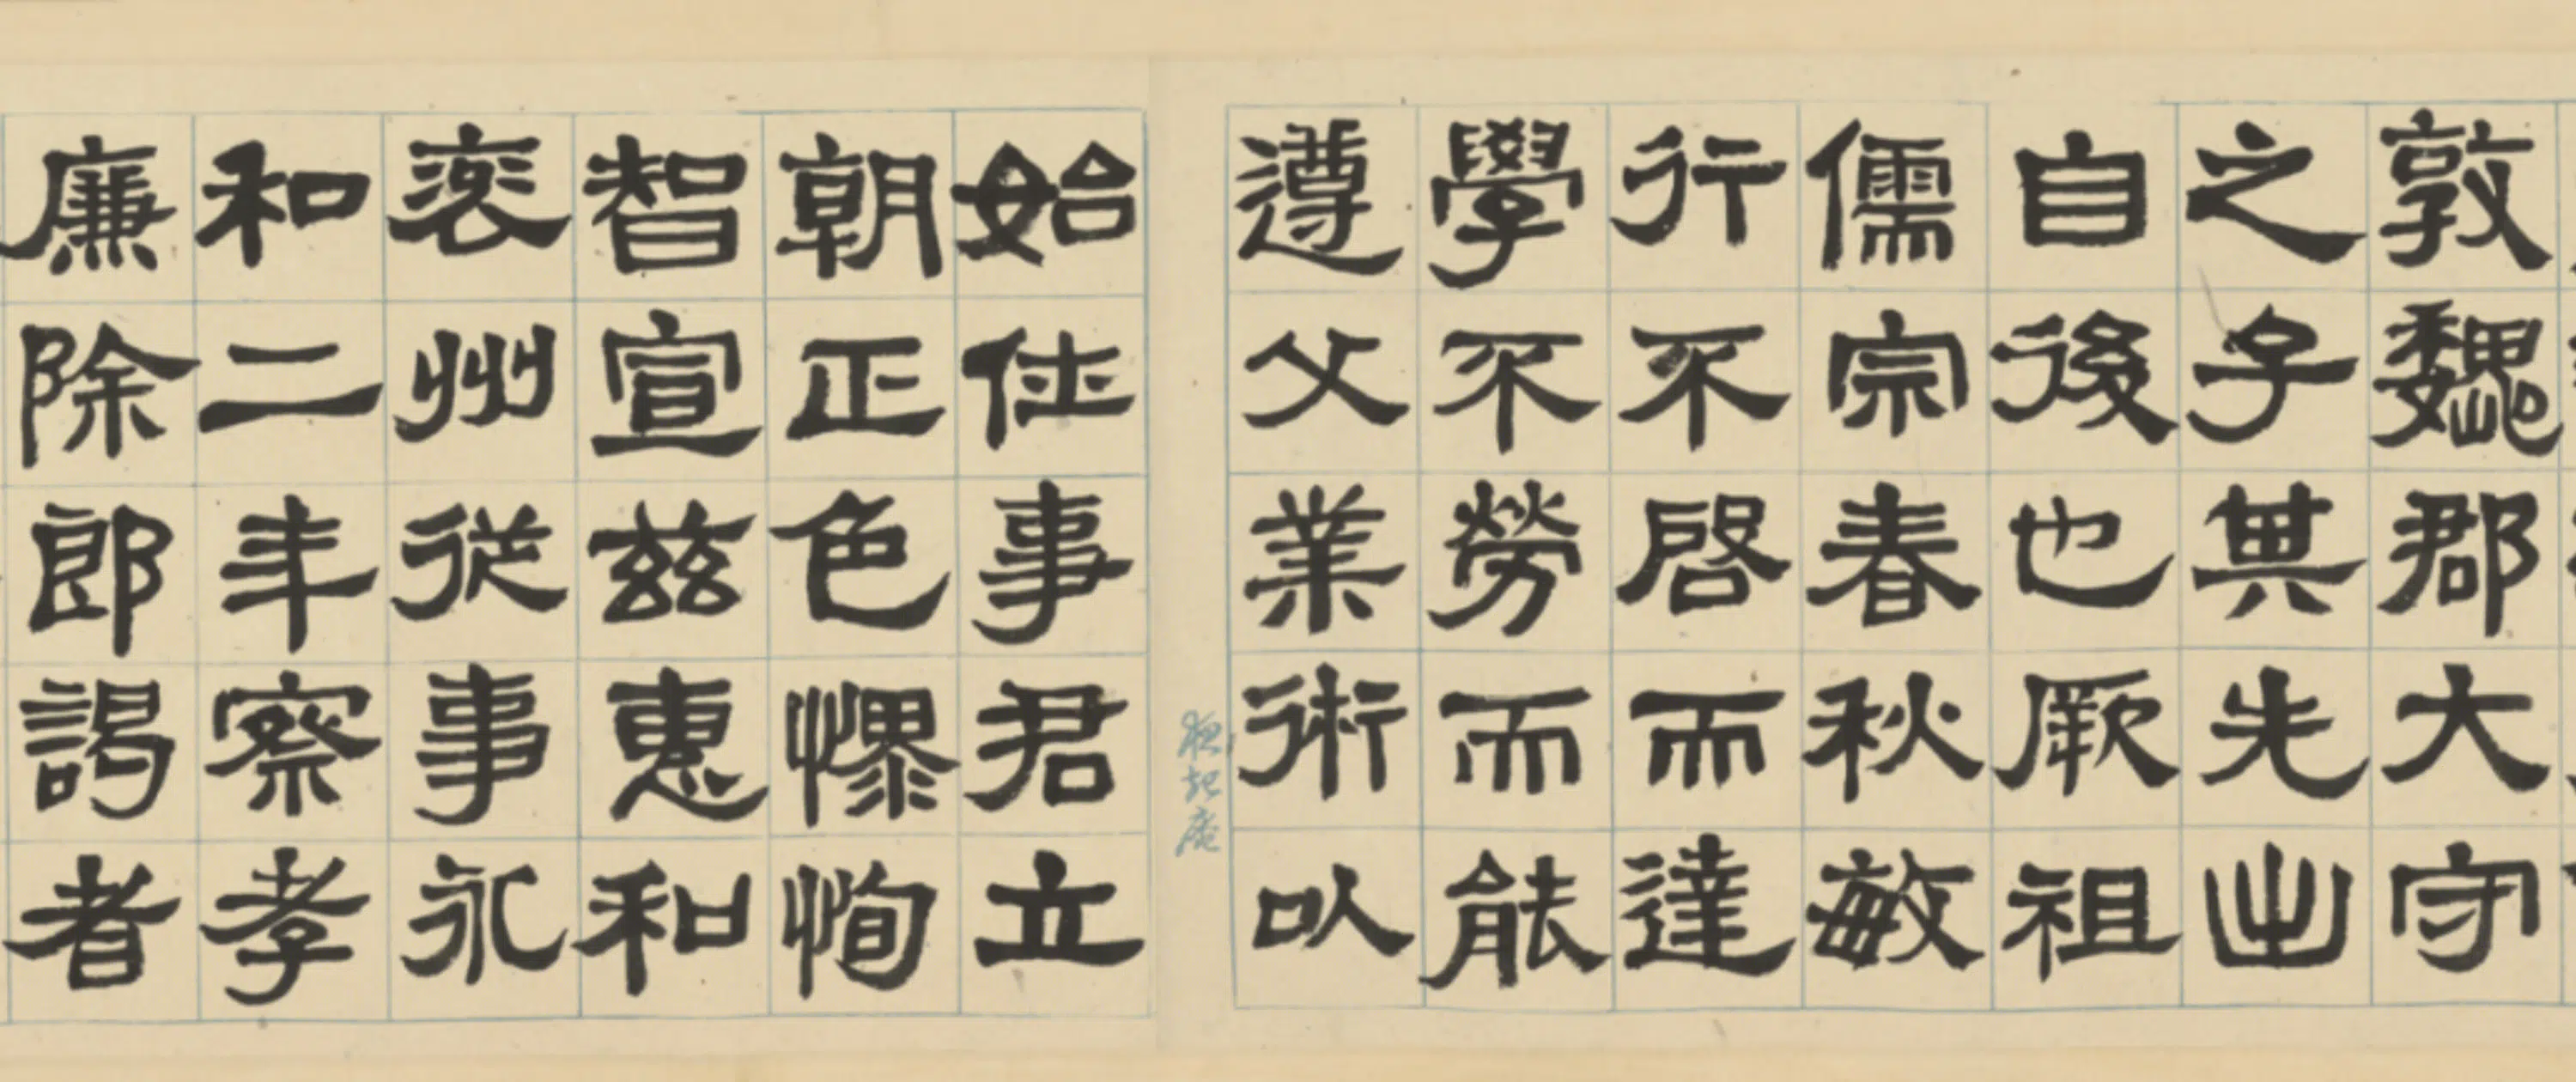 敦魏郡大守
之子其先出
自後也厥祖
儒宗春秋敏
行不啓而達
學不勞而能
遵父業術以
夜起庵
始仕事君立
朝正色慄恂
智宣兹惠和
衮州從事永
和二年察孝
廉除郎謁者